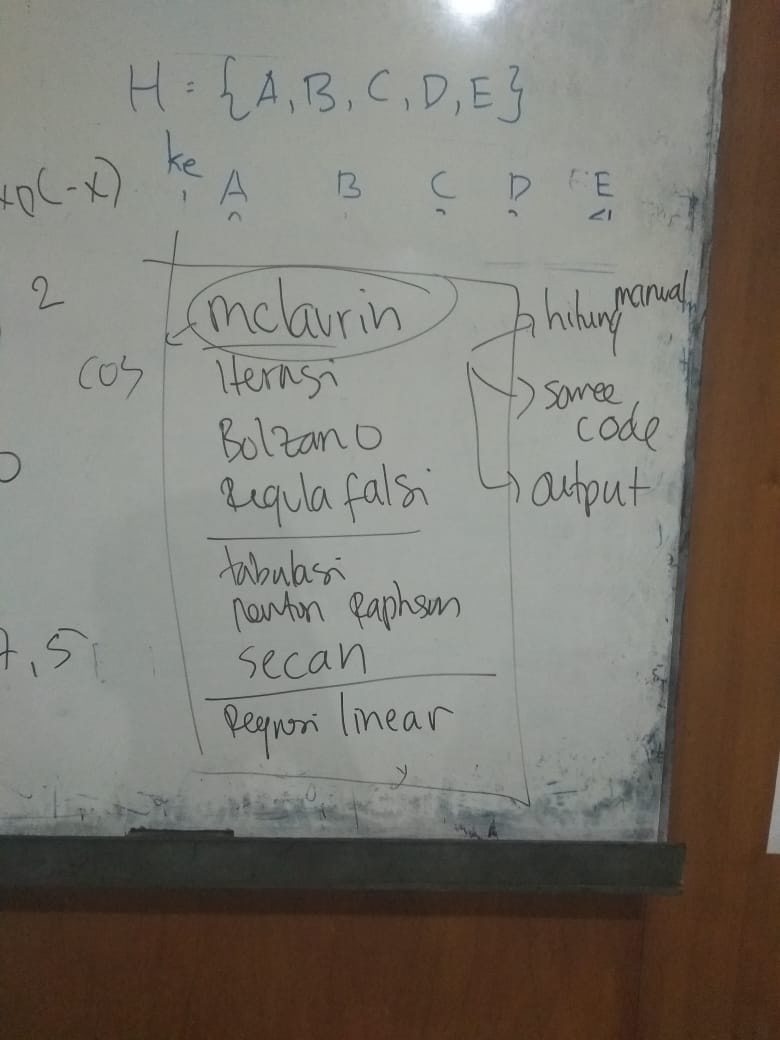 H = {A, B, C, D, E}
ke A B C D E
xp(-x)
2
cos
mclaurin
Iterasi
Bolzano
Regula falsi
tabulasi
newton Raphson
secan
Regresi linear
hitung manual
source code
output
7,5